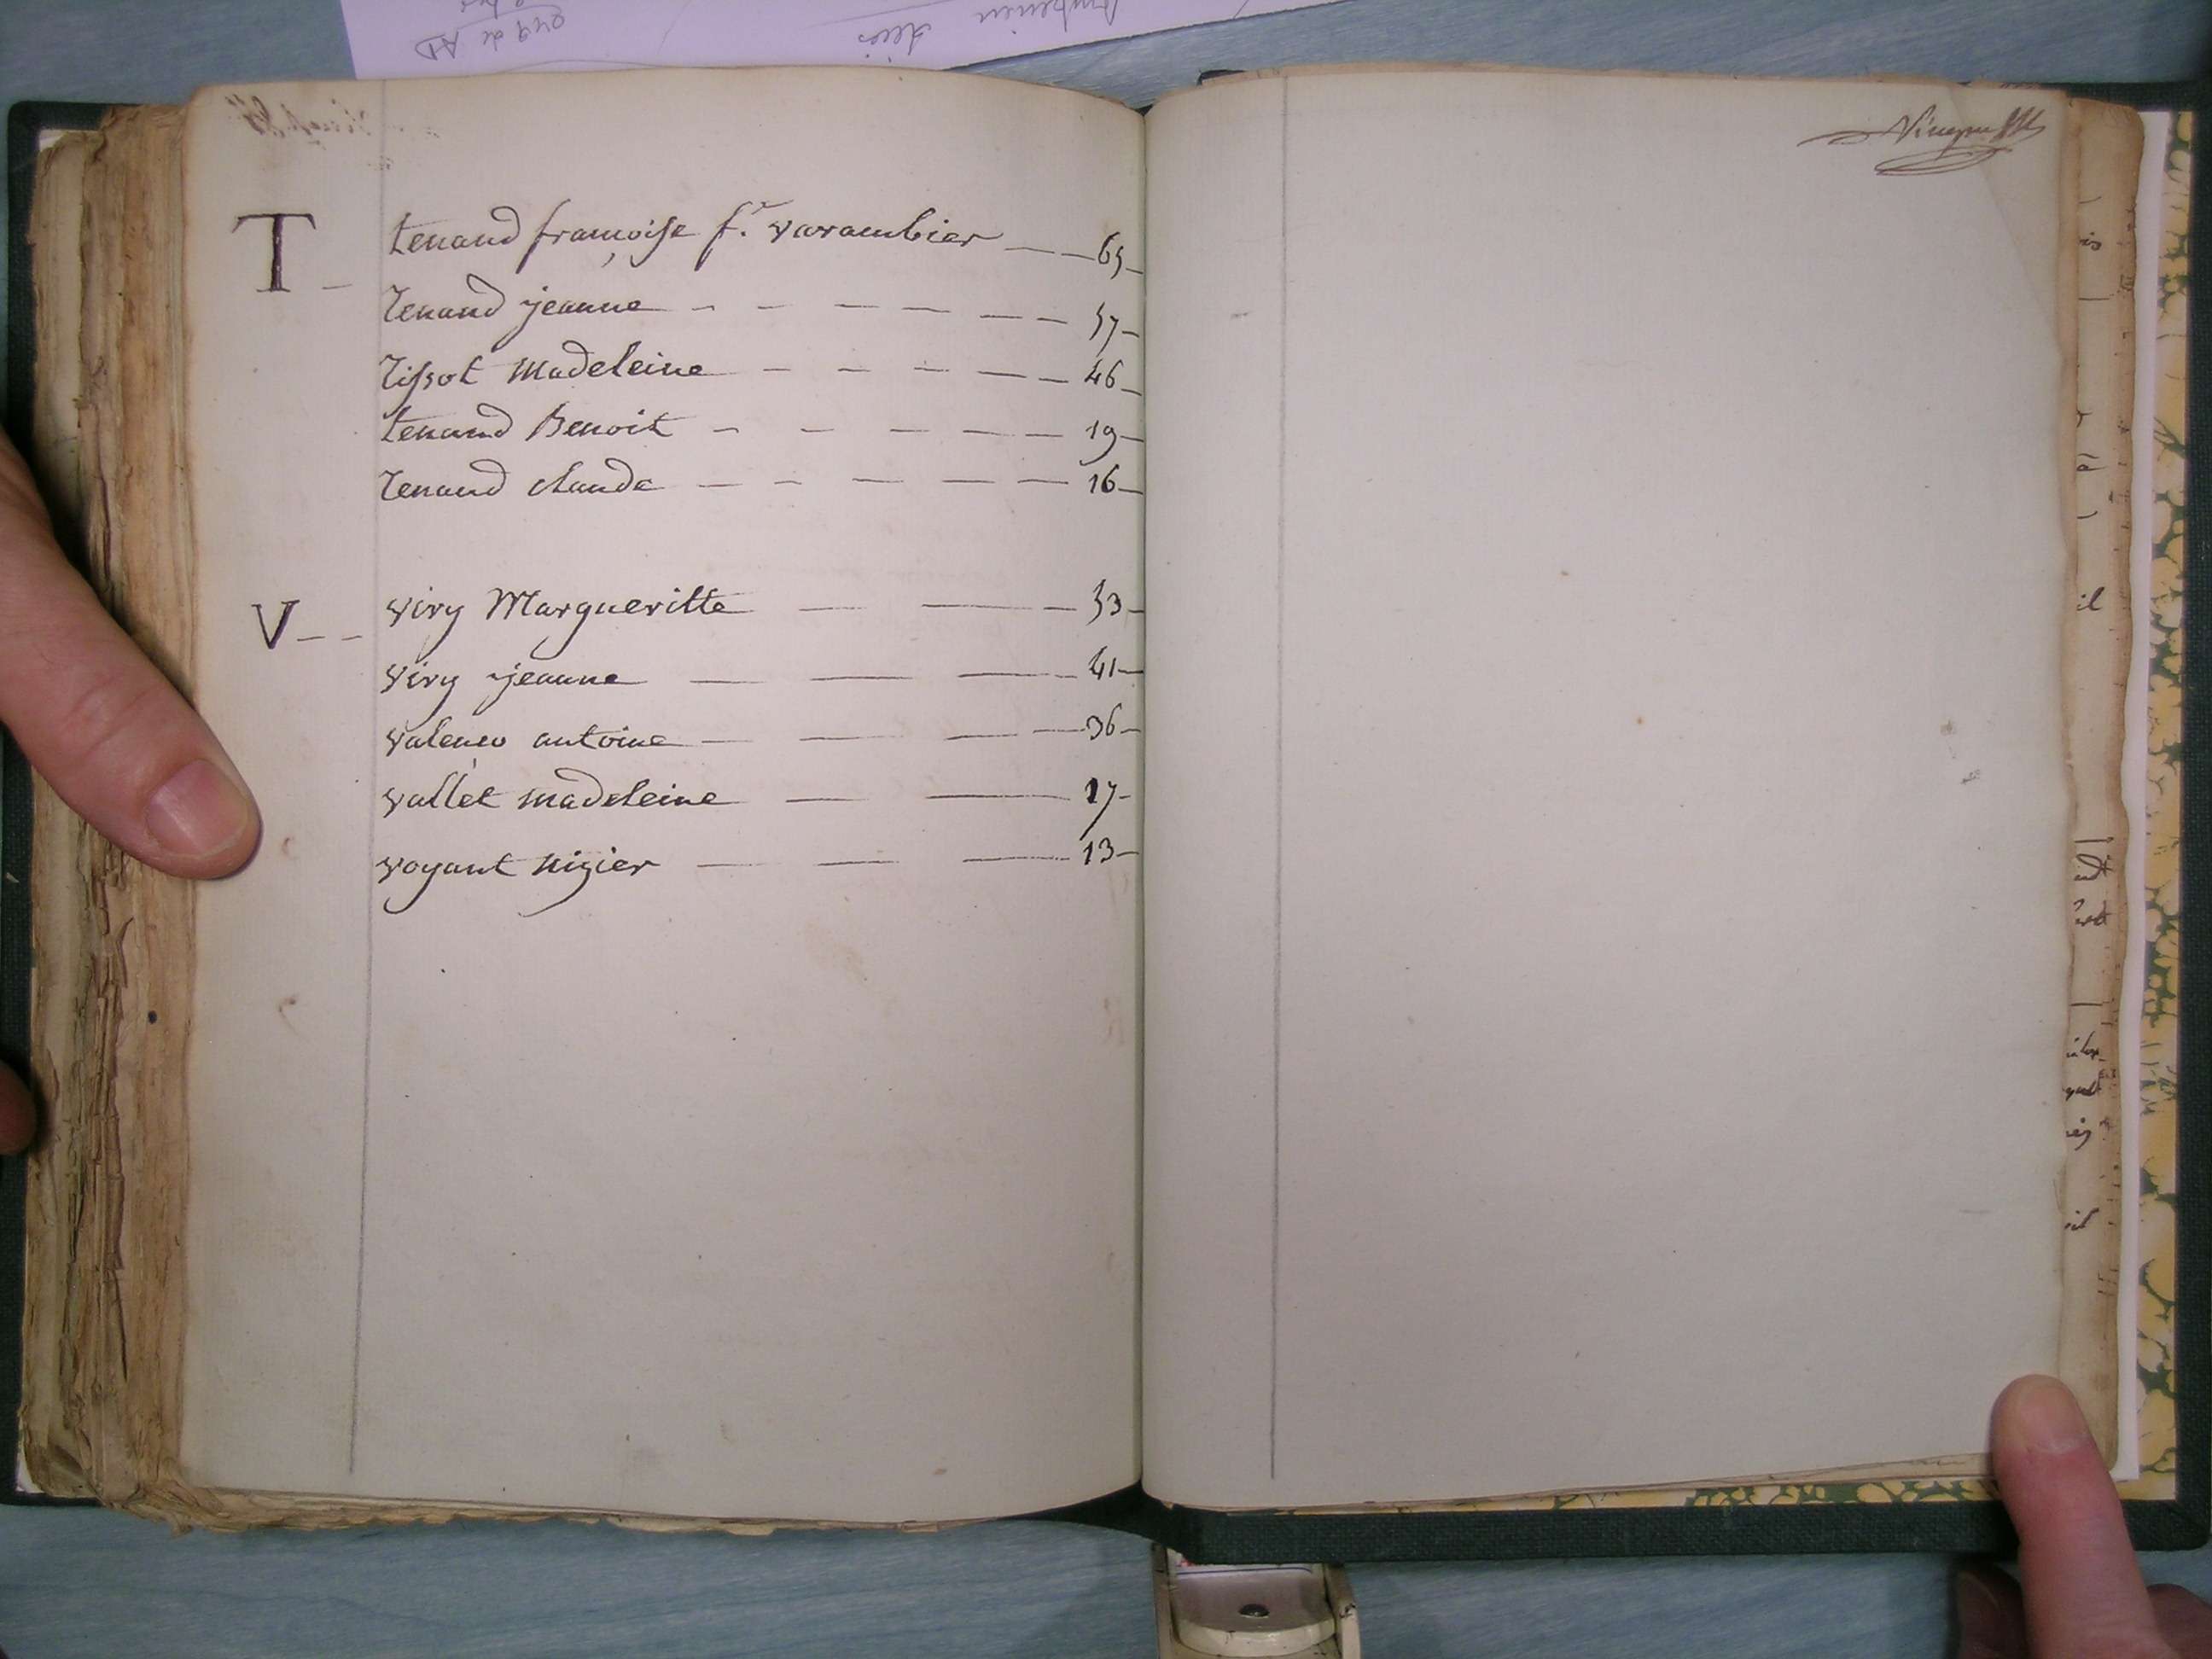 T - tenand françoise f.e varambier — — 65 -
tenand jeanne - - - - - - 57 -
tissot Madeleine - - - - - 46 -
tenand Benoit - - - - - 19 -
tenand claude - - - - - 16 -
V - - viry Margueritte — — — 53 -
viry jeanne — — — 41 -
antoine — — — 36 -
vallet madeleine — — 17 -
voyant nizier — — — 13 -